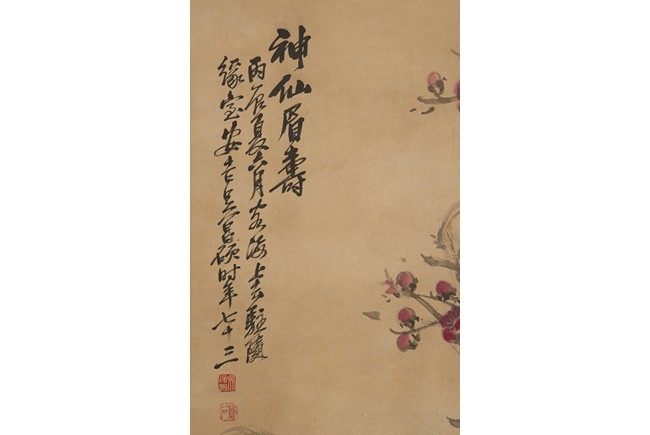 神仙眉壽
丙辰夏六月客海上去駐隨
緣室安吉吳昌碩時年七十三